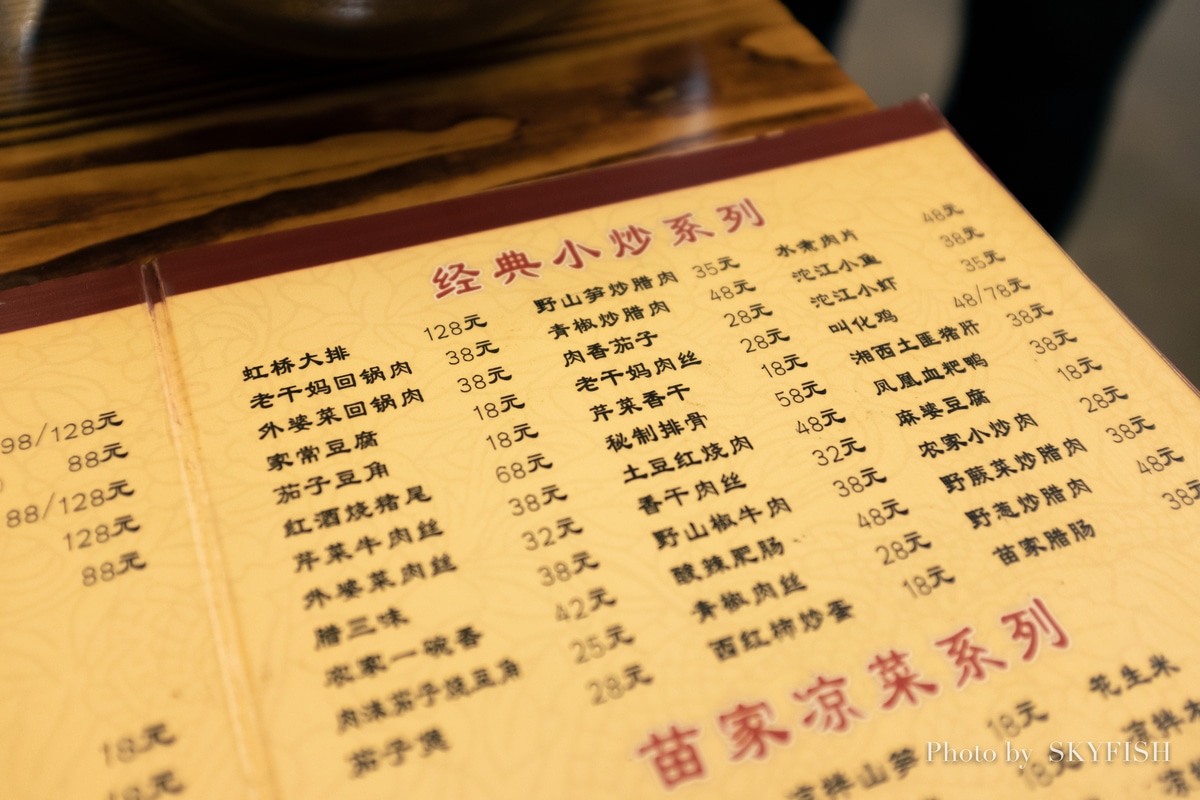 98/128元
88元
88/128元
128元
88元
18元
18元
经典小炒系列
虹桥大排 128元
老干妈回锅肉 38元
外婆菜回锅肉 38元
家常豆腐 18元
茄子豆角 18元
红酒烧猪尾 68元
芹菜牛肉丝 38元
外婆菜肉丝 32元
腊三味 38元
农家一碗香 42元
肉沫茄子烧豆角 25元
茄子煲 28元
野山笋炒腊肉 35元
青椒炒腊肉 48元
肉香茄子 28元
老干妈肉丝 28元
芹菜香干 18元
秘制排骨 58元
土豆红烧肉 48元
香干肉丝 32元
野山椒牛肉 38元
酸辣肥肠 48元
青椒肉丝 28元
西红柿炒蛋 18元
水煮肉片 48元
沱江小鱼 38元
沱江小虾 35元
叫化鸡 48/78元
湘西土匪猪肝 38元
凤凰血粑鸭 38元
麻婆豆腐 18元
农家小炒肉 28元
野蕨菜炒腊肉 38元
野葱炒腊肉 48元
苗家腊肠 38元
苗家凉菜系列
凉拌山笋 18元
花生米
凉拌
Photo by SKYFISH